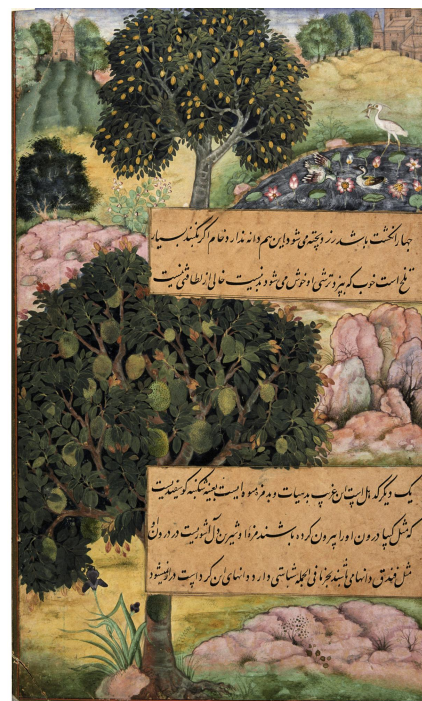 چهار انگشت باشد زرد پخته می شود این هم دانه ندارد خام اگر بکنند بسیار
تلخ است خوب که بپزد ترشی او خوش می شود بد نیست خالی از لطافتی نیست
یک دیگر کدهل است این غریب بدهیات و بدمزه میوه ایست بعینه شکنبه گوسفندیست
که مثل کیپا درون او را بیرون کرده باشند مزه او شیرین دل آشوبیست در درون او
مثل فندق دانها می باشد بخرما فی الجمله شباهتی دارد دانهای این کرد است دراز نمیشود